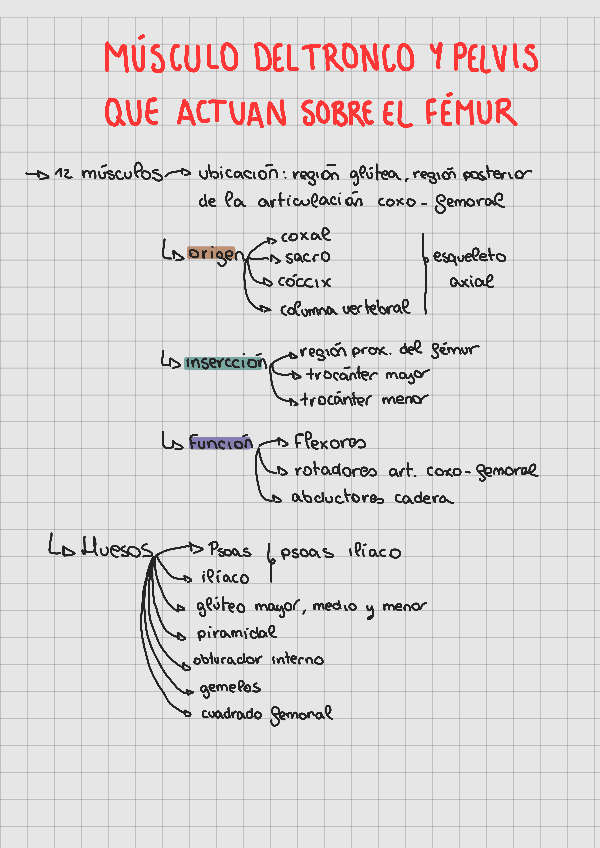 MÚSCULO DEL TRONCO Y PELVIS
QUE ACTUAN SOBRE EL FÉMUR
→ 12 músculos → ubicación: región glútea, región posterior
de la articulación coxo-femoral
↳ origen → coxal
→ sacro
→ cóccix
→ columna vertebral
esqueleto
axial
↳ insercción → región prox. del fémur
→ trocánter mayor
→ trocánter menor
↳ Función → Flexores
→ rotadores art. coxo-femoral
→ abductores cadera
↳ Huesos → Psoas | psoas ilíaco
→ ilíaco
→ glúteo mayor, medio y menor
→ piramidal
→ obturador interno
→ gemelos
→ cuadrado femoral